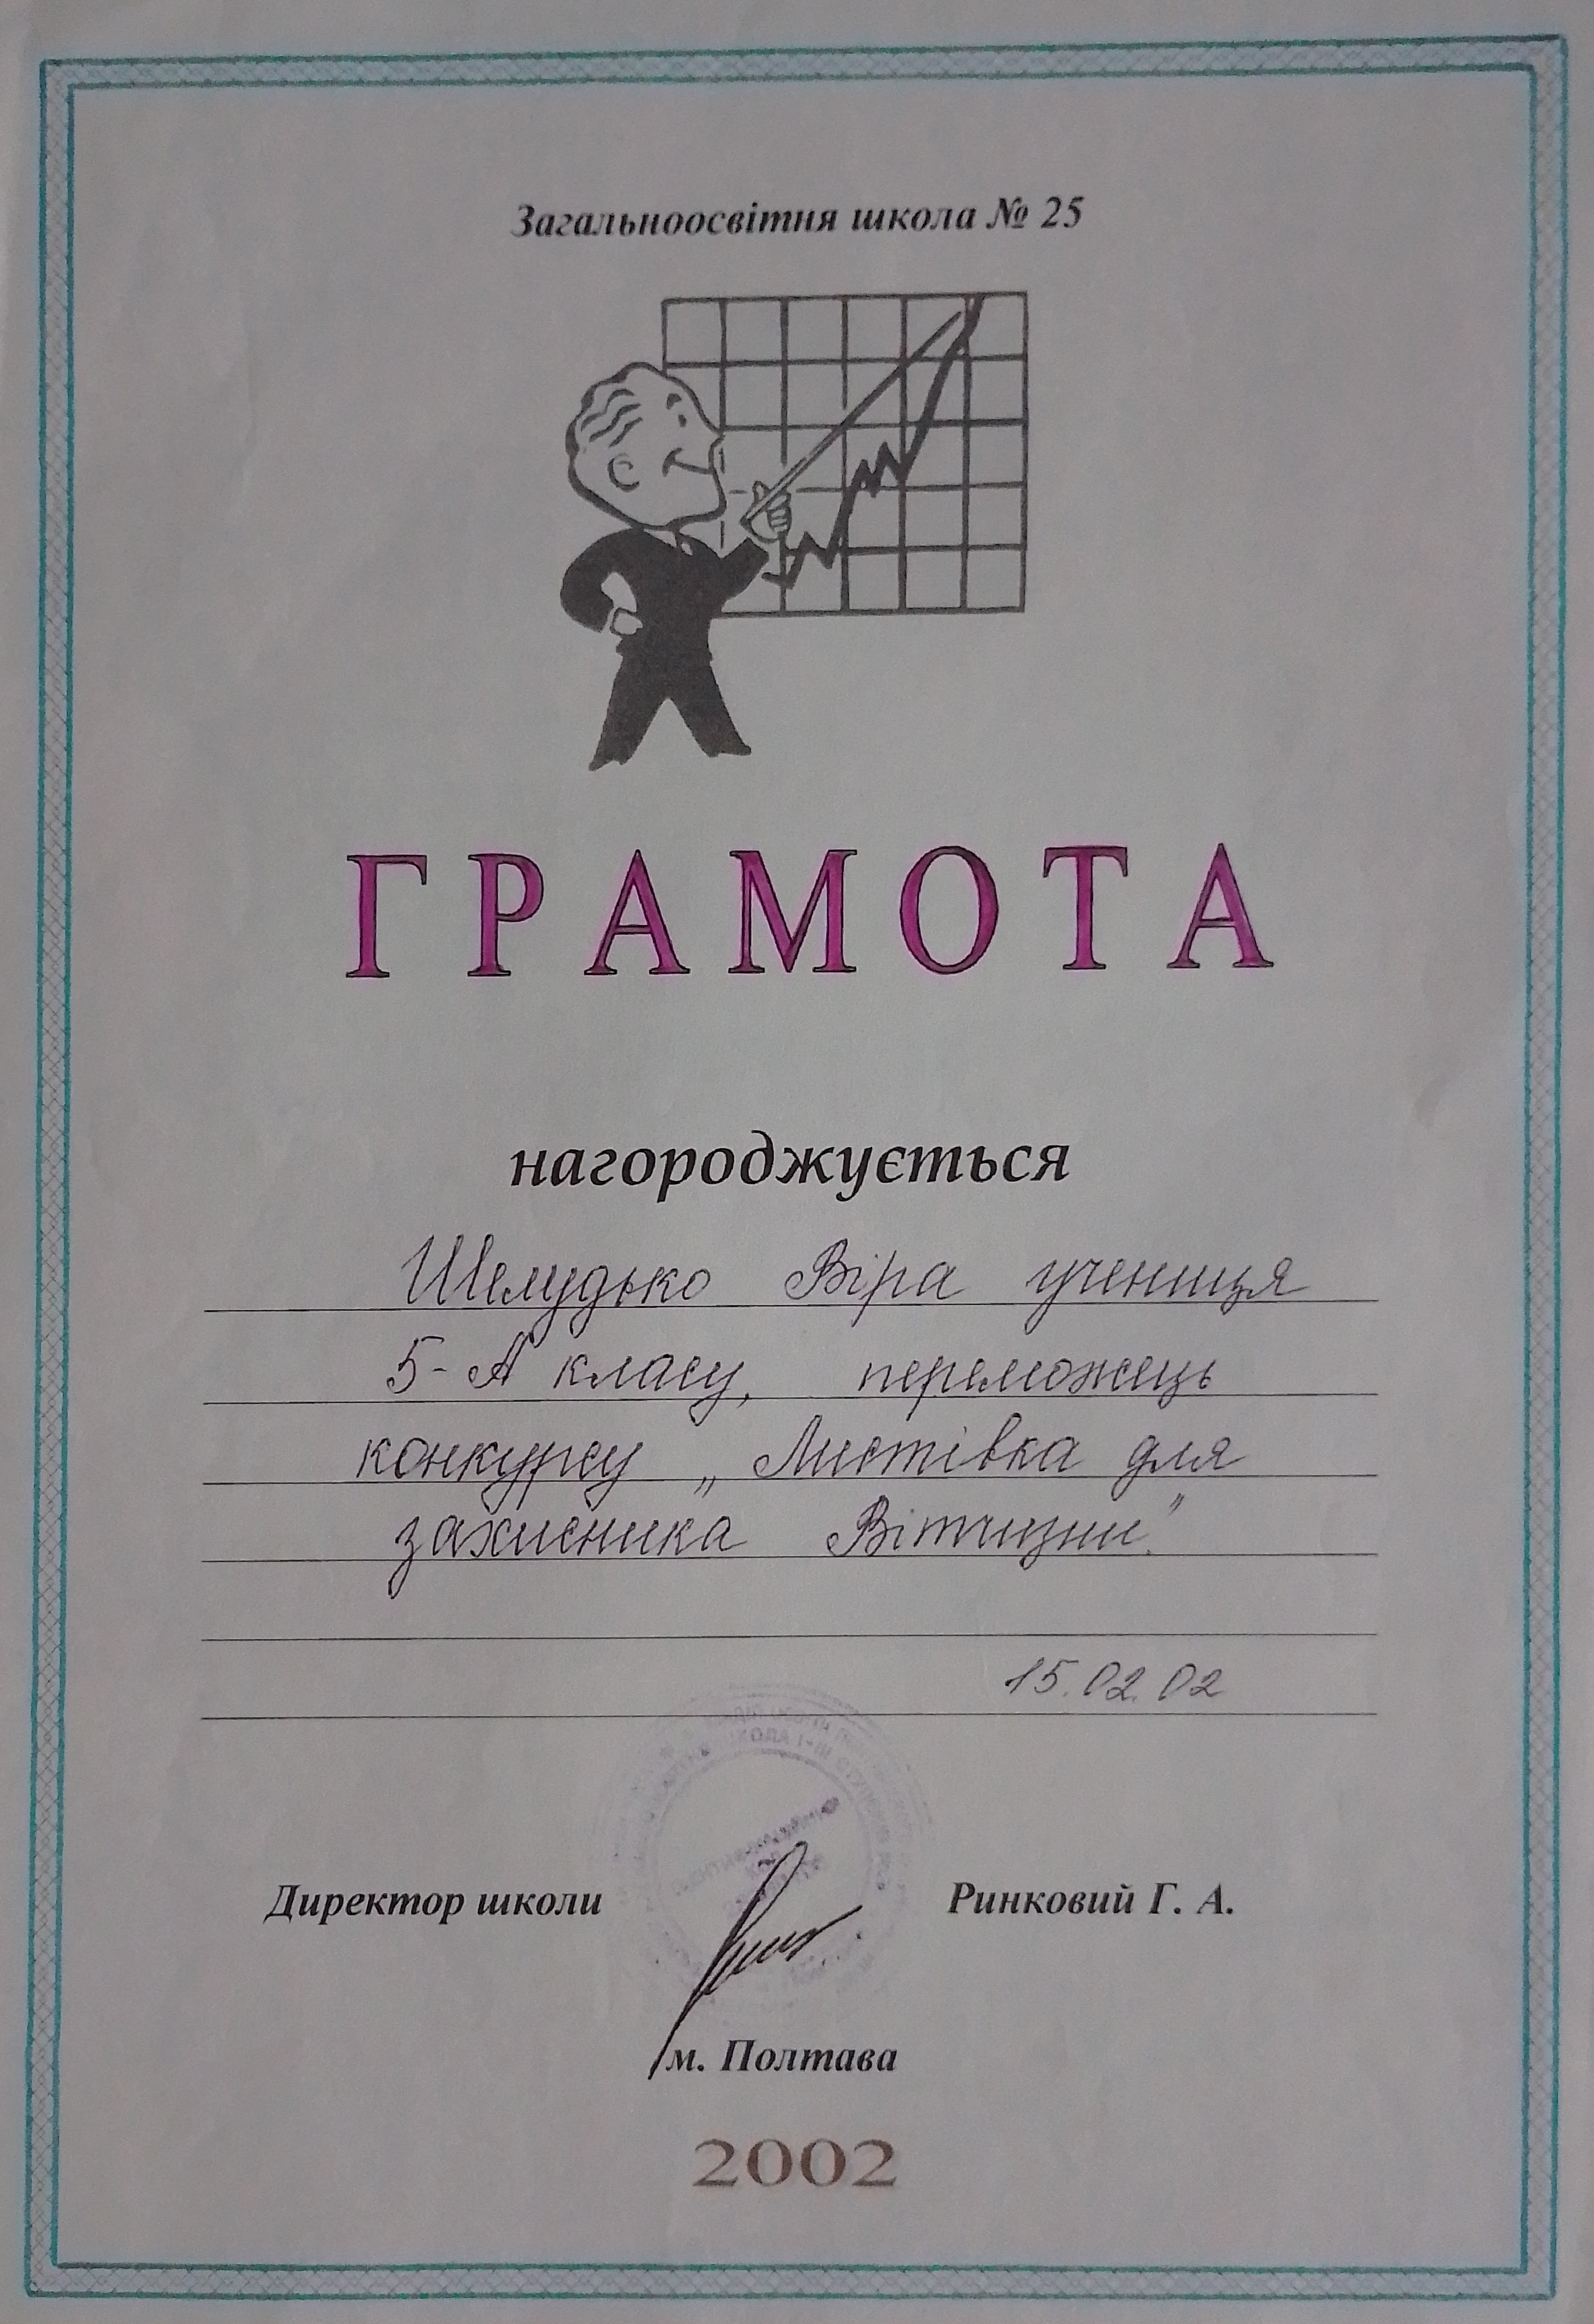 Загальноосвітня школа № 25
ГРАМОТА
нагороджується
Шелудько Віра учениця
5-А класу, переможець
конкурсу „Листівка для
захисника Вітчизни".
15.02.02
Директор школи Ринковий Г. А.
м. Полтава
2002